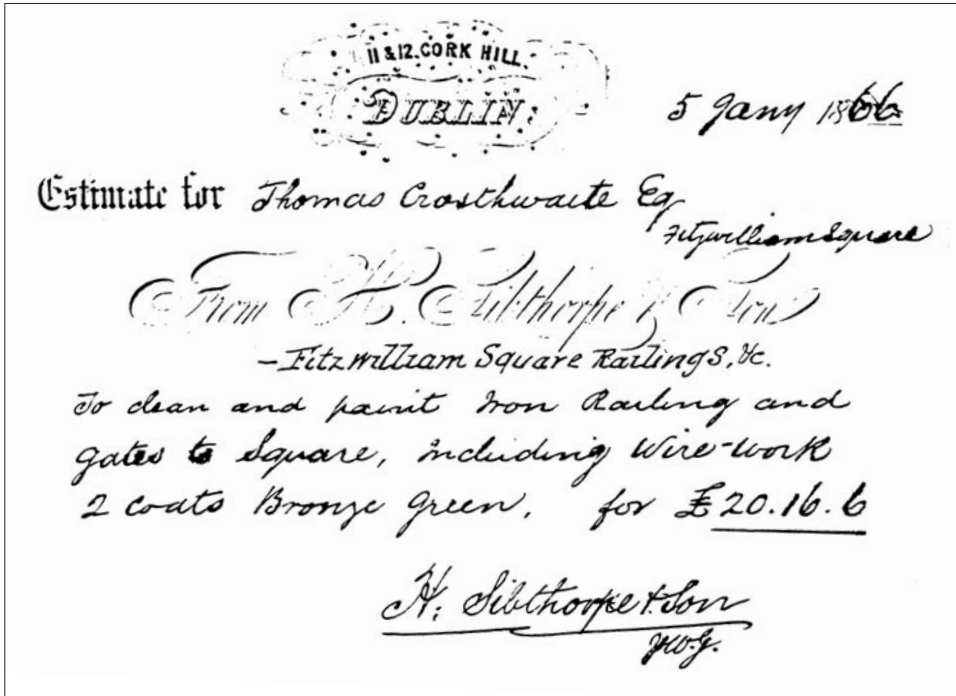 11 & 12. CORK HILL.
DUBLIN.
5 Jany 1866
Estimate for Thomas Crosthwaite Eq
Fitzwilliam Square
From H. Sibthorpe & Son
— Fitzwilliam Square Railings, &c.
To clean and paint Iron Railing and
gates to Square, including Wire-work
2 coats Bronze Green, for £20.16.6
H. Sibthorpe & Son